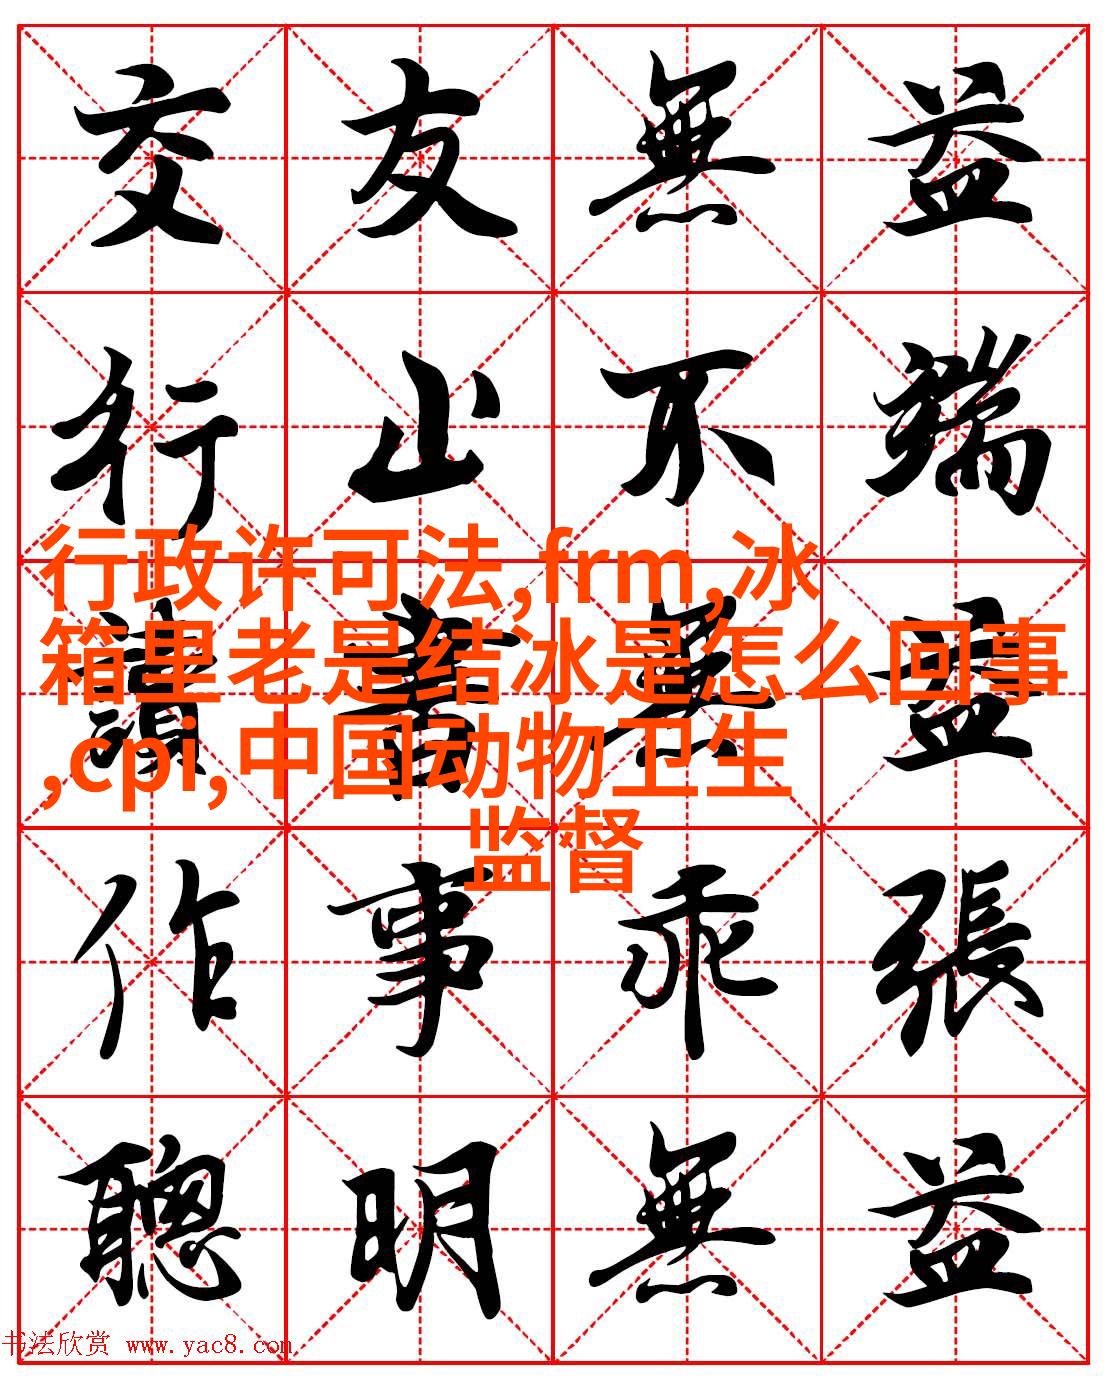 交友無益
行止不端
行政许可法,frm,冰
箱里老是结冰是怎么回事
,cpi,中国动物卫生
监督
讀書無益
作事乖張
聰明無益
书法欣赏 www.yac8.com